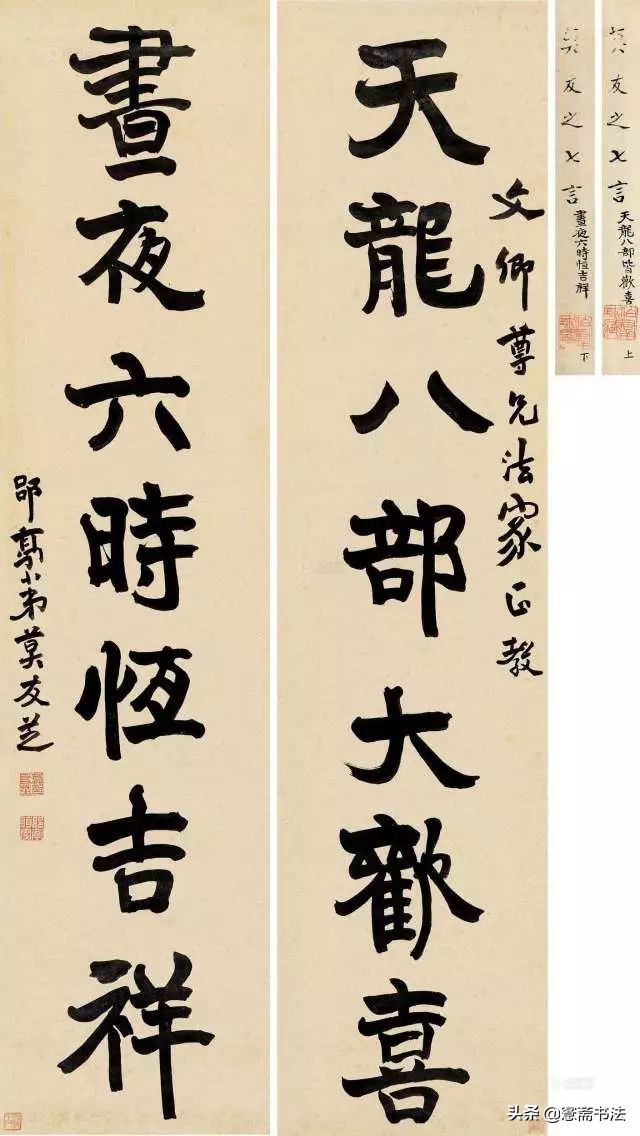 莫友之七言 天龍八部皆歡喜 上
莫友之七言 晝夜六時恒吉祥 下
文卿尊兄法家正教
天龍八部大歡喜
晝夜六時恆吉祥
郘亭小弟莫友芝
头条 @愙斋书法